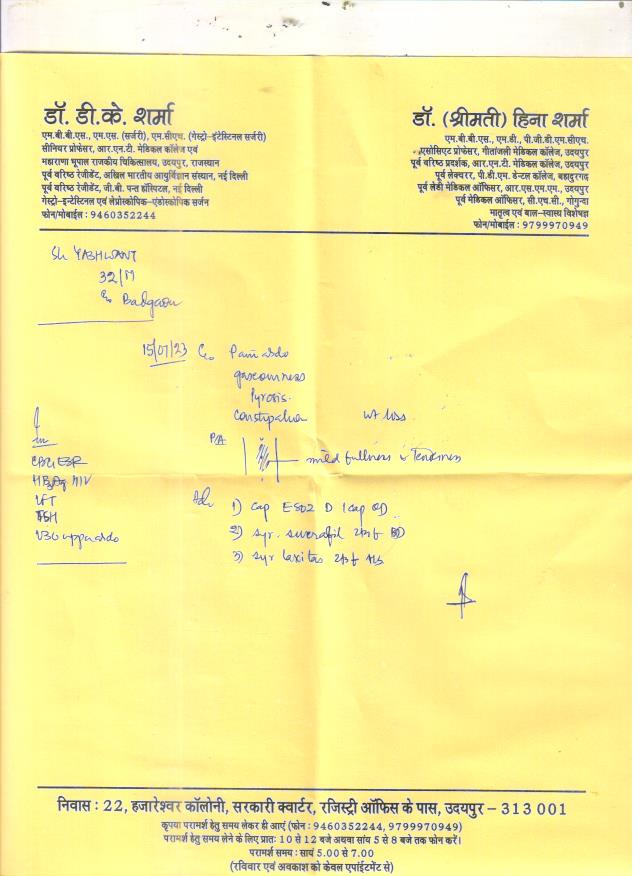 डॉ. डी.के. शर्मा
एम.बी.बी.एस., एम.एस. (सर्जरी), एम.सीएच. (गेस्ट्रो-इंटेस्टिनल सर्जरी)
सीनियर प्रोफेसर, आर.एन.टी. मेडिकल कॉलेज एवं
महाराणा भूपाल राजकीय चिकित्सालय, उदयपुर, राजस्थान
पूर्व वरिष्ठ रेजीडेंट, अखिल भारतीय आयुर्विज्ञान संस्थान, नई दिल्ली
पूर्व वरिष्ठ रेजीडेंट, जी.बी. पन्त हॉस्पिटल, नई दिल्ली
गेस्ट्रो-इन्टेस्टिनल एवं लेप्रोस्कोपिक-एंडोस्कोपिक सर्जन
फोन/मोबाईल : 9460352244
डॉ. (श्रीमती) हिना शर्मा
एम.बी.बी.एस., एम.डी., पी.जी.डी.एम.सीएच.
एसोसिएट प्रोफेसर, गीतांजली मेडिकल कॉलेज, उदयपुर
पूर्व वरिष्ठ प्रदर्शक, आर.एन.टी. मेडिकल कॉलेज, उदयपुर
पूर्व लेक्चरर, पी.डी.एम. डेन्टल कॉलेज, बहादुरगढ़
पूर्व लेडी मेडिकल ऑफिसर, आर.एस.एम.एम., उदयपुर
पूर्व मेडिकल ऑफिसर, सी.एच.सी., गोगुन्दा
मातृत्व एवं बाल-स्वास्थ्य विशेषज्ञ
फोन/मोबाईल : 9799970949
Sh YASHWANT
32/M
c/o Badgaon
15/07/23 c/o Pain abdo
gaseousness
Pyrosis.
Constipation wt loss
P/A mild fullness & Tenderness
Inv
CBC ESR
HBsAg HIV
LFT
TSH
USG upper abdo
Adv 1) Cap ESOZ D 1 cap OD
2) Syr. sucrafil 2tsf BD
3) Syr laxitas 2tsf HS
निवास : 22, हजारेश्वर कॉलोनी, सरकारी क्वार्टर, रजिस्ट्री ऑफिस के पास, उदयपुर – 313 001
कृपया परामर्श हेतु समय लेकर ही आएं (फोन : 9460352244, 9799970949)
परामर्श हेतु समय लेने के लिए प्रातः 10 से 12 बजे अथवा सांय 5 से 8 बजे तक फोन करें।
परामर्श समय : सायं 5.00 से 7.00
(रविवार एवं अवकाश को केवल एपाईंटमेंट से)